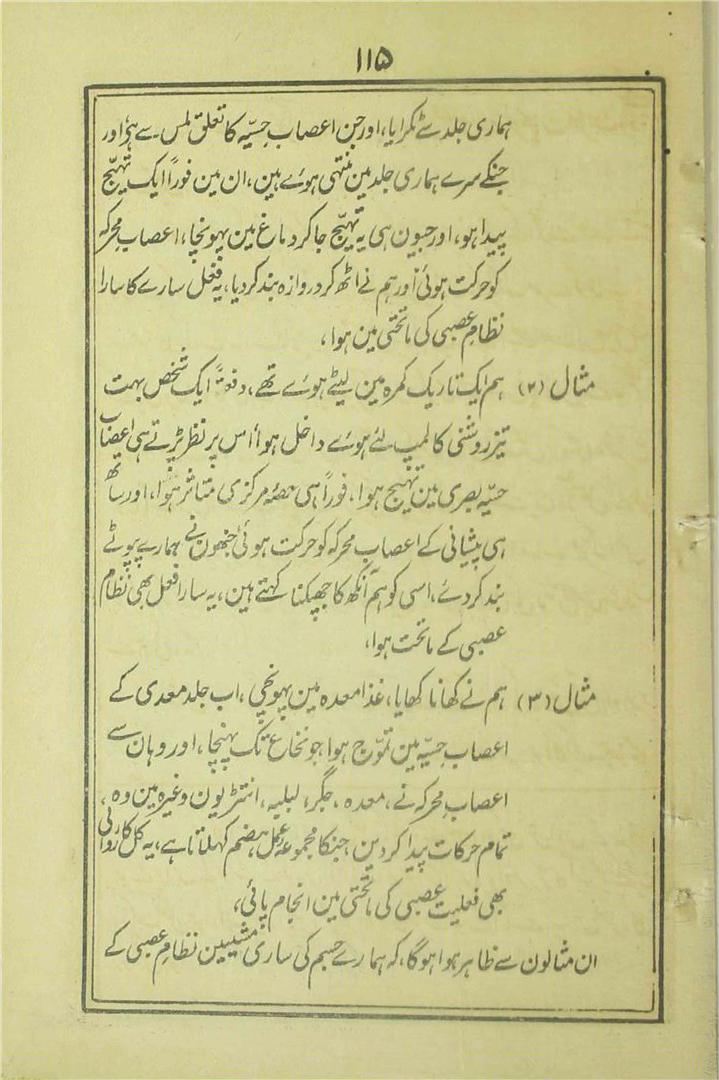 ۱۱۵
ہماری جلد سے ٹکرایا، اور جن اعصاب حِسیّہ کا تعلق لمس سے ہو، اور
جنکے سرے ہماری جلد مین منتہی ہوئے ہین، ان مین فوراً ایک تہیّج
پیدا ہو، اور جیون ہی یہ تہیّج جا کر دماغ مین پہونچا، اعصاب محرکہ
کو حرکت ہوئی اور ہم نے اٹھ کر دروازہ بند کر دیا، یہ فعل سارے کا سارا
نظامِ عصبی کی ماتحتی مین ہوا،
مثال (۲) ہم ایک تاریک کمرہ مین لیٹے ہوئے تھے، دفعۃً ایک شخص بہت
تیز روشنی کا لمپ لئے ہوئے داخل ہوا، اس پر نظر پڑتے ہی اعصاب
حسیّہ بصری مین تہیج ہوا، فوراً ہی حصۂ مرکزی متاثر ہوا، اور ساتھ
ہی پیشانی کے اعصاب محرکہ کو حرکت ہوئی جنھون نے ہمارے پپوٹے
بند کر دئے، اسی کو ہم آنکھ کا جھپکنا کہتے ہین، یہ سارا فعل بھی نظام
عصبی کے ماتحت ہوا،
مثال (۳) ہم نے کھانا کھایا، غذا معدہ مین پہونچی، اب جلد معدی کے
اعصاب حِسیّہ مین تموّج ہوا جو نخاع تک پہنچا، اور وہان سے
اعصابِ محرکہ نے، معدہ، جگر، لبلبہ، انتڑیون وغیرہ مین وہ
تمام حرکات پیدا کر دین جنکا مجموعہ عمل ہضم کہلاتا ہے، یہ کل کارروائی
بھی فعلیت عصبی کی ماتحتی مین انجام پائی،
ان مثالون سے ظاہر ہوا ہوگا، کہ ہمارے جسم کی ساری مشینین نظامِ عصبی کے